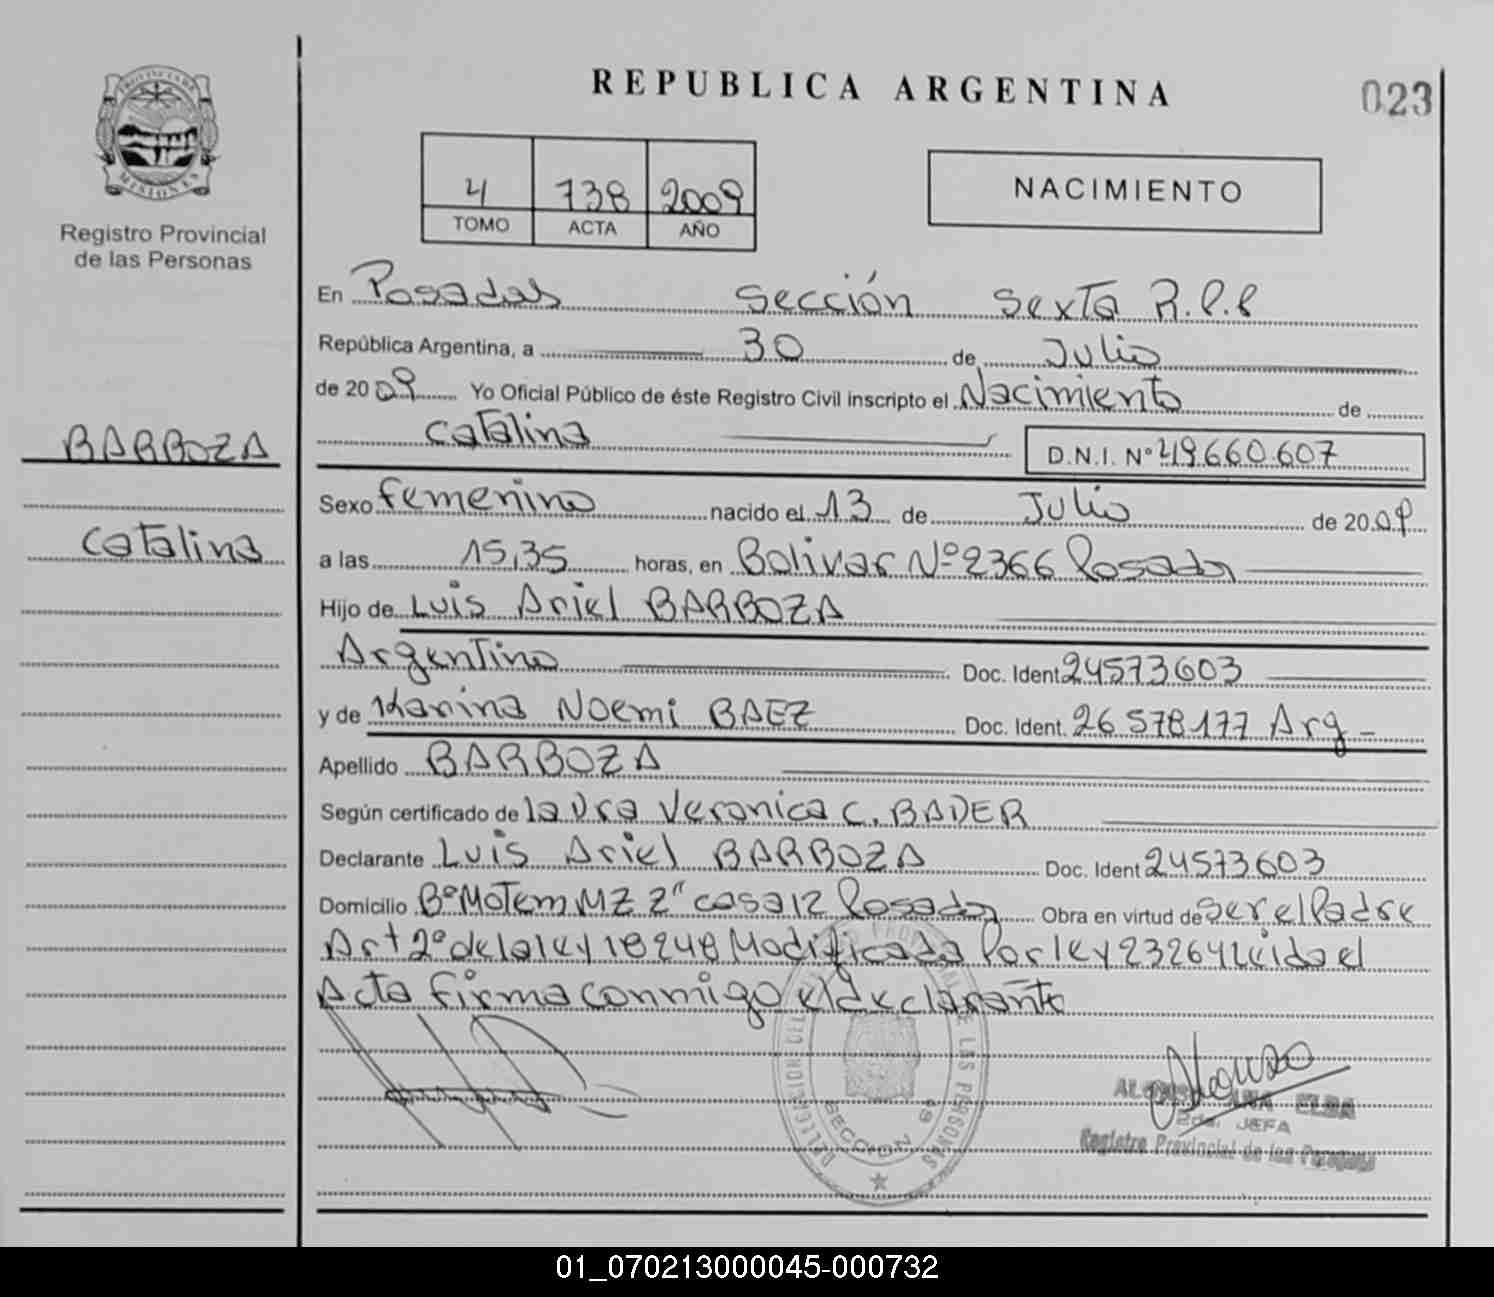 REPUBLICA ARGENTINA
023
PROVINCIA DE
MISIONES
Registro Provincial
de las Personas
4 738 2009
TOMO ACTA AÑO
NACIMIENTO
En Posadas Sección Sexta R.P.P
República Argentina, a 30 de Julio
de 2009 Yo Oficial Público de éste Registro Civil inscripto el Nacimiento de
Catalina D.N.I. Nº 49.660.607
BARBOZA
Catalina
Sexo Femenino nacido el 13 de Julio de 2009
a las 15,35 horas, en Bolivar Nº 2366 Posadas
Hijo de Luis Ariel BARBOZA
Argentino Doc. Ident 24573603
y de Karina Noemi BAEZ Doc. Ident. 26578177 Arg -
Apellido BARBOZA
Según certificado de la Dra Veronica C. BADER
Declarante Luis Ariel BARBOZA Doc. Ident 24573603
Domicilio Bº MOTEM MZ Z" casa 12 Posadas Obra en virtud de Ser el Padre
Art 2º de la ley 18248 Modificada Por ley 23264 Leida el
Acta firma conmigo el declarante
SECCION 6ª
ELBA
2da. JEFA
Registro Provincial de las Personas
01_070213000045-000732